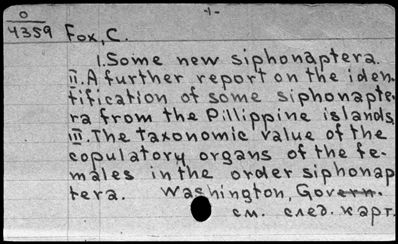 -1-
O
4359 Fox, C.
I. Some new siphonaptera.
II. A further report on the iden-
tification of some siphonapte-
ra from the Pillippine islands
III. The taxonomic value of the
copulatory organs of the fe-
males in the order siphonap
tera. Washington, Govern.
см. след. карт.